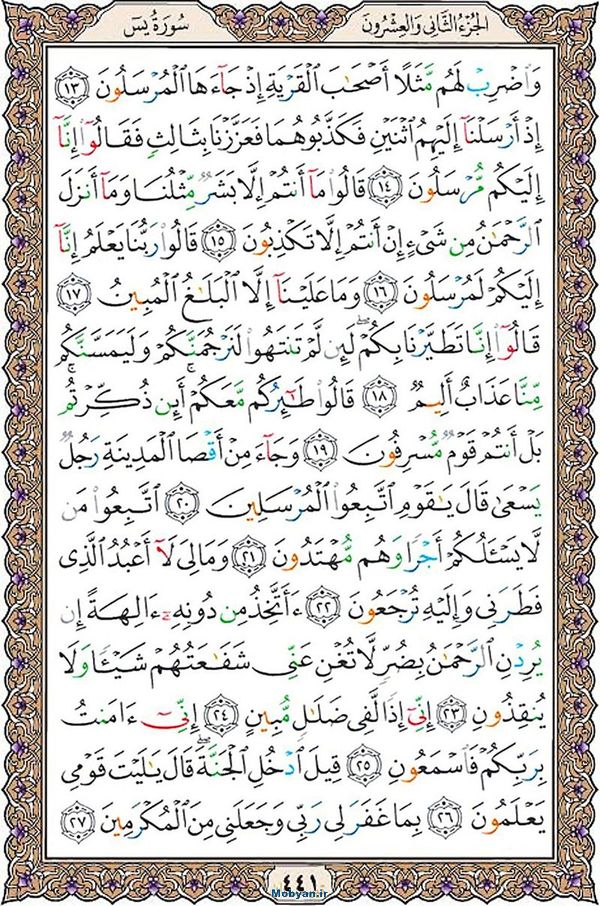 الجُزءُ الثّانِي وَالعِشرُون
سُورَةُ يٰسٓ
وَاضْرِبْ لَهُم مَّثَلًا أَصْحَابَ الْقَرْيَةِ إِذْ جَاءَهَا الْمُرْسَلُونَ ﴿١٣﴾
إِذْ أَرْسَلْنَا إِلَيْهِمُ اثْنَيْنِ فَكَذَّبُوهُمَا فَعَزَّزْنَا بِثَالِثٍ فَقَالُوا إِنَّا
إِلَيْكُم مُّرْسَلُونَ ﴿١٤﴾ قَالُوا مَا أَنتُمْ إِلَّا بَشَرٌ مِّثْلُنَا وَمَا أَنزَلَ
الرَّحْمَٰنُ مِن شَيْءٍ إِنْ أَنتُمْ إِلَّا تَكْذِبُونَ ﴿١٥﴾ قَالُوا رَبُّنَا يَعْلَمُ إِنَّا
إِلَيْكُمْ لَمُرْسَلُونَ ﴿١٦﴾ وَمَا عَلَيْنَا إِلَّا الْبَلَاغُ الْمُبِينُ ﴿١٧﴾
قَالُوا إِنَّا تَطَيَّرْنَا بِكُمْ ۖ لَئِن لَّمْ تَنتَهُوا لَنَرْجُمَنَّكُمْ وَلَيَمَسَّنَّكُم
مِّنَّا عَذَابٌ أَلِيمٌ ﴿١٨﴾ قَالُوا طَائِرُكُم مَّعَكُمْ ۚ أَئِن ذُكِّرْتُم ۚ
بَلْ أَنتُمْ قَوْمٌ مُّسْرِفُونَ ﴿١٩﴾ وَجَاءَ مِنْ أَقْصَا الْمَدِينَةِ رَجُلٌ
يَسْعَىٰ قَالَ يَا قَوْمِ اتَّبِعُوا الْمُرْسَلِينَ ﴿٢٠﴾ اتَّبِعُوا مَن
لَّا يَسْئَلُكُمْ أَجْرًا وَهُم مُّهْتَدُونَ ﴿٢١﴾ وَمَا لِيَ لَا أَعْبُدُ الَّذِي
فَطَرَنِي وَإِلَيْهِ تُرْجَعُونَ ﴿٢٢﴾ ءَأَتَّخِذُ مِن دُونِهِ ءَالِهَةً إِن
يُرِدْنِ الرَّحْمَٰنُ بِضُرٍّ لَّا تُغْنِ عَنِّي شَفَاعَتُهُمْ شَيْئًا وَلَا
يُنقِذُونِ ﴿٢٣﴾ إِنِّي إِذًا لَّفِي ضَلَالٍ مُّبِينٍ ﴿٢٤﴾ إِنِّي ءَامَنتُ
بِرَبِّكُمْ فَاسْمَعُونِ ﴿٢٥﴾ قِيلَ ادْخُلِ الْجَنَّةَ ۖ قَالَ يَا لَيْتَ قَوْمِي
يَعْلَمُونَ ﴿٢٦﴾ بِمَا غَفَرَ لِي رَبِّي وَجَعَلَنِي مِنَ الْمُكْرَمِينَ ﴿٢٧﴾
٤٤١
Mobyan.ir